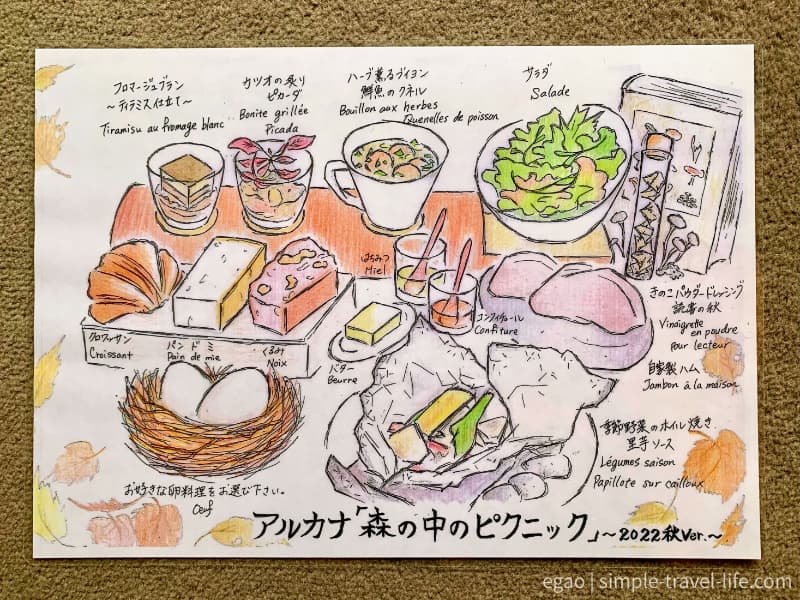 フロマージュブラン
〜ティラミス仕立て〜
Tiramisu au fromage blanc
カツオの炙り
ピカーダ
Bonite grillée
Picada
ハーブ薫るブイヨン
鮮魚のクネル
Bouillon aux herbes
Quenelles de poisson
サラダ
Salade
はちみつ
Miel
クロワッサン
Croissant
パンドミ
Pain de mie
くるみ
Noix
バター
Beurre
コンフィチュール
Confiture
きのこパウダードレッシング
読書の秋
Vinaigrette
en poudre
pour lecteur
自家製ハム
Jambon à la maison
季節野菜のホイル焼き
里芋ソース
Légumes saison
Papillote sur cailloux
お好きな卵料理をお選び下さい。
Oeuf
アルカナ「森の中のピクニック」〜2022秋Ver.〜
egao | simple-travel-life.com